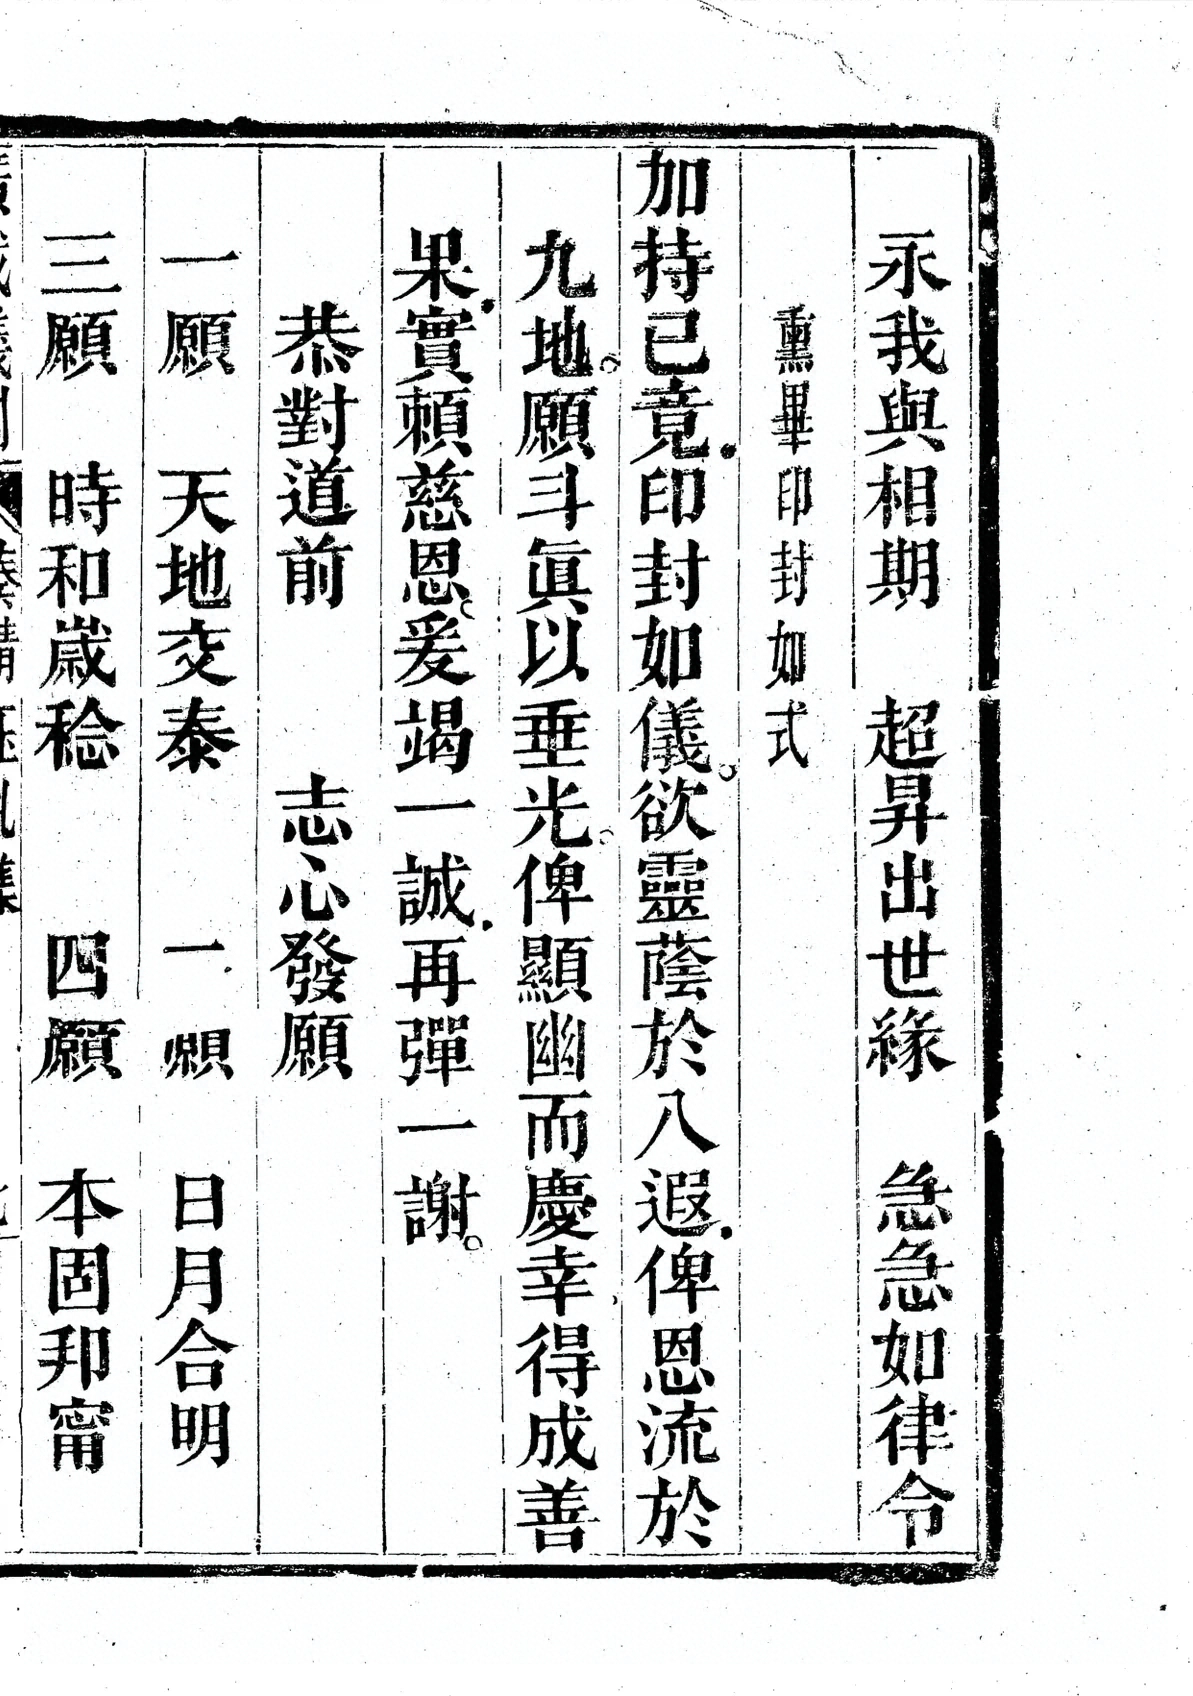 永我與相期　超昇出世緣　急急如律令
熏畢印封如式
加持已竟．印封如儀。欲靈蔭於八遐．俾恩流於
九地。願斗眞以垂光。俾顯幽而慶幸．得成善
果．實頼慈恩。爰竭一誠．再彈一謝。
恭對道前　志心發願
一願　天地交泰　一願　日月合明
三願　時和歲稔　四願　本固邦甯